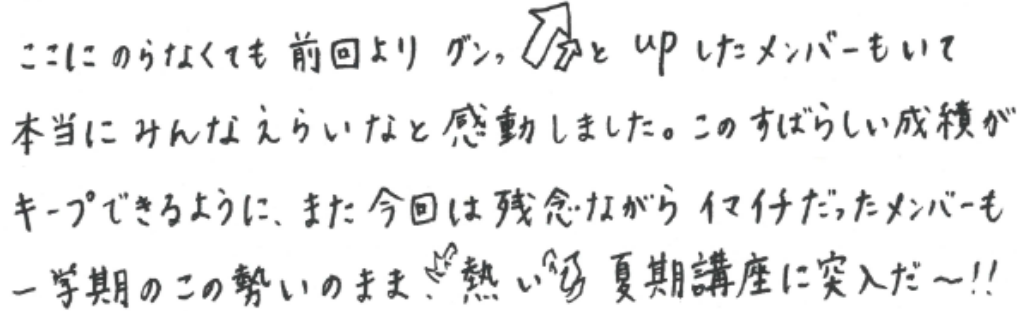 ここにのらなくても前回よりグンっとupしたメンバーもいて
本当にみんなえらいなと感動しました。このすばらしい成績が
キープできるように、また今回は残念ながらイマイチだったメンバーも
一学期のこの勢いのまま、熱い夏期講座に突入だ〜!!